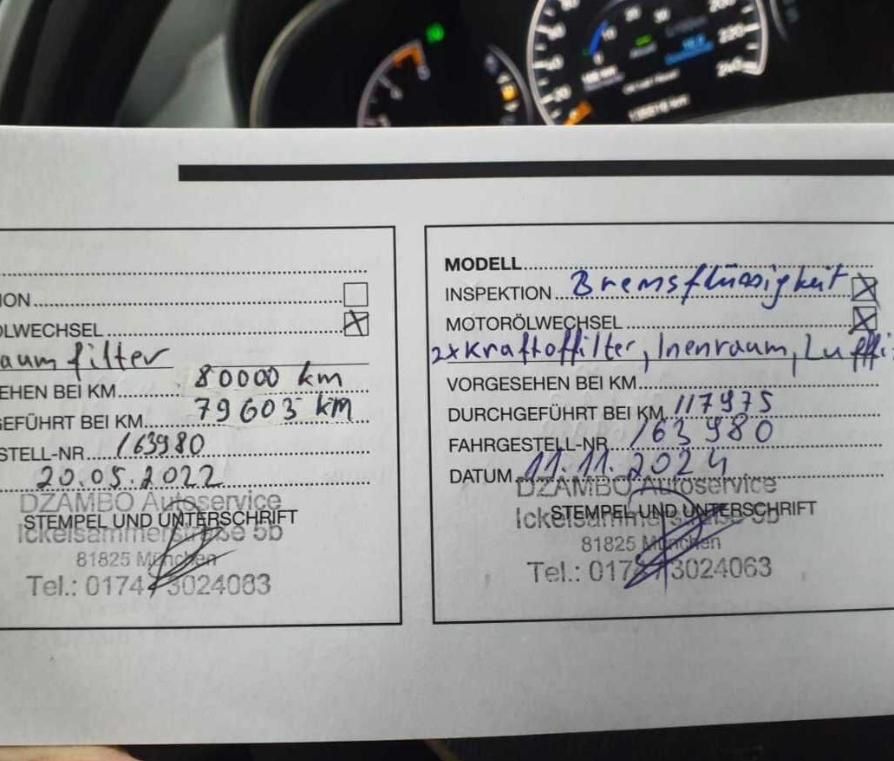 220
240
ION
ÖLWECHSEL
aumfilter
EHEN BEI KM 80000 km
GEFÜHRT BEI KM 79603 km
STELL-NR 163980
20.05.2022
DZAMBO Autoservice
STEMPEL UND UNTERSCHRIFT
Ickelsammerstraße 5b
81825 München
Tel.: 0174 73024063
MODELL
INSPEKTION Bremsflüssigkeit X
MOTORÖLWECHSEL X
2xKraftoffilter, Inenraum, Luffi
VORGESEHEN BEI KM
DURCHGEFÜHRT BEI KM 117975
FAHRGESTELL-NR 163980
DATUM 11.11.2024
DZAMBO Autoservice
STEMPEL UND UNTERSCHRIFT
Ickelsammerstraße 5b
81825 München
Tel.: 0174 73024063